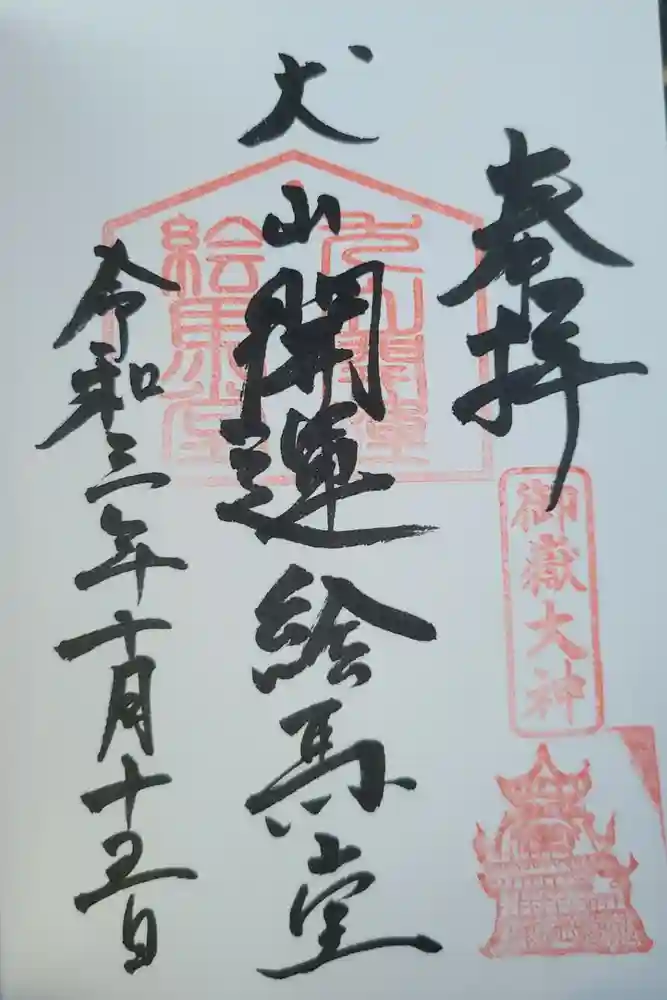 奉拝
御嶽大神
犬山開運絵馬堂
犬山開運
絵馬堂
令和三年十月十五日